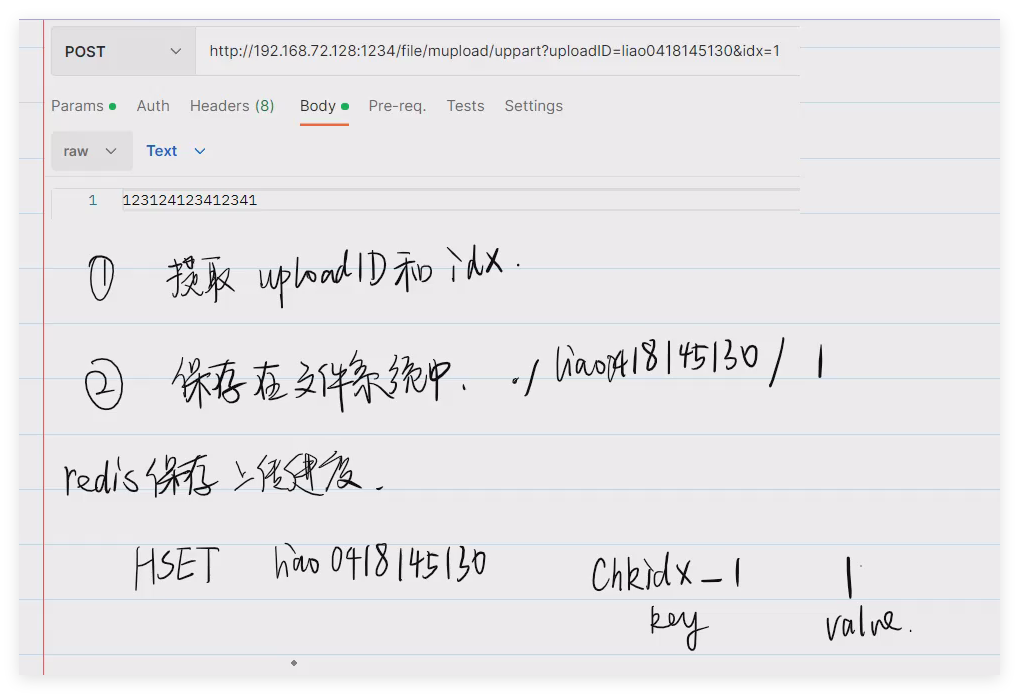 POST http://192.168.72.128:1234/file/mupload/uppart?uploadID=liao0418145130&idx=1
Params Auth Headers (8) Body Pre-req. Tests Settings
raw Text
1 123124123412341
① 提取 uploadID和 idx.
② 保存在文件系统中. ./liao0418145130/1
redis保存上传进度.
HSET liao0418145130 Chkidx_1 1
key value.